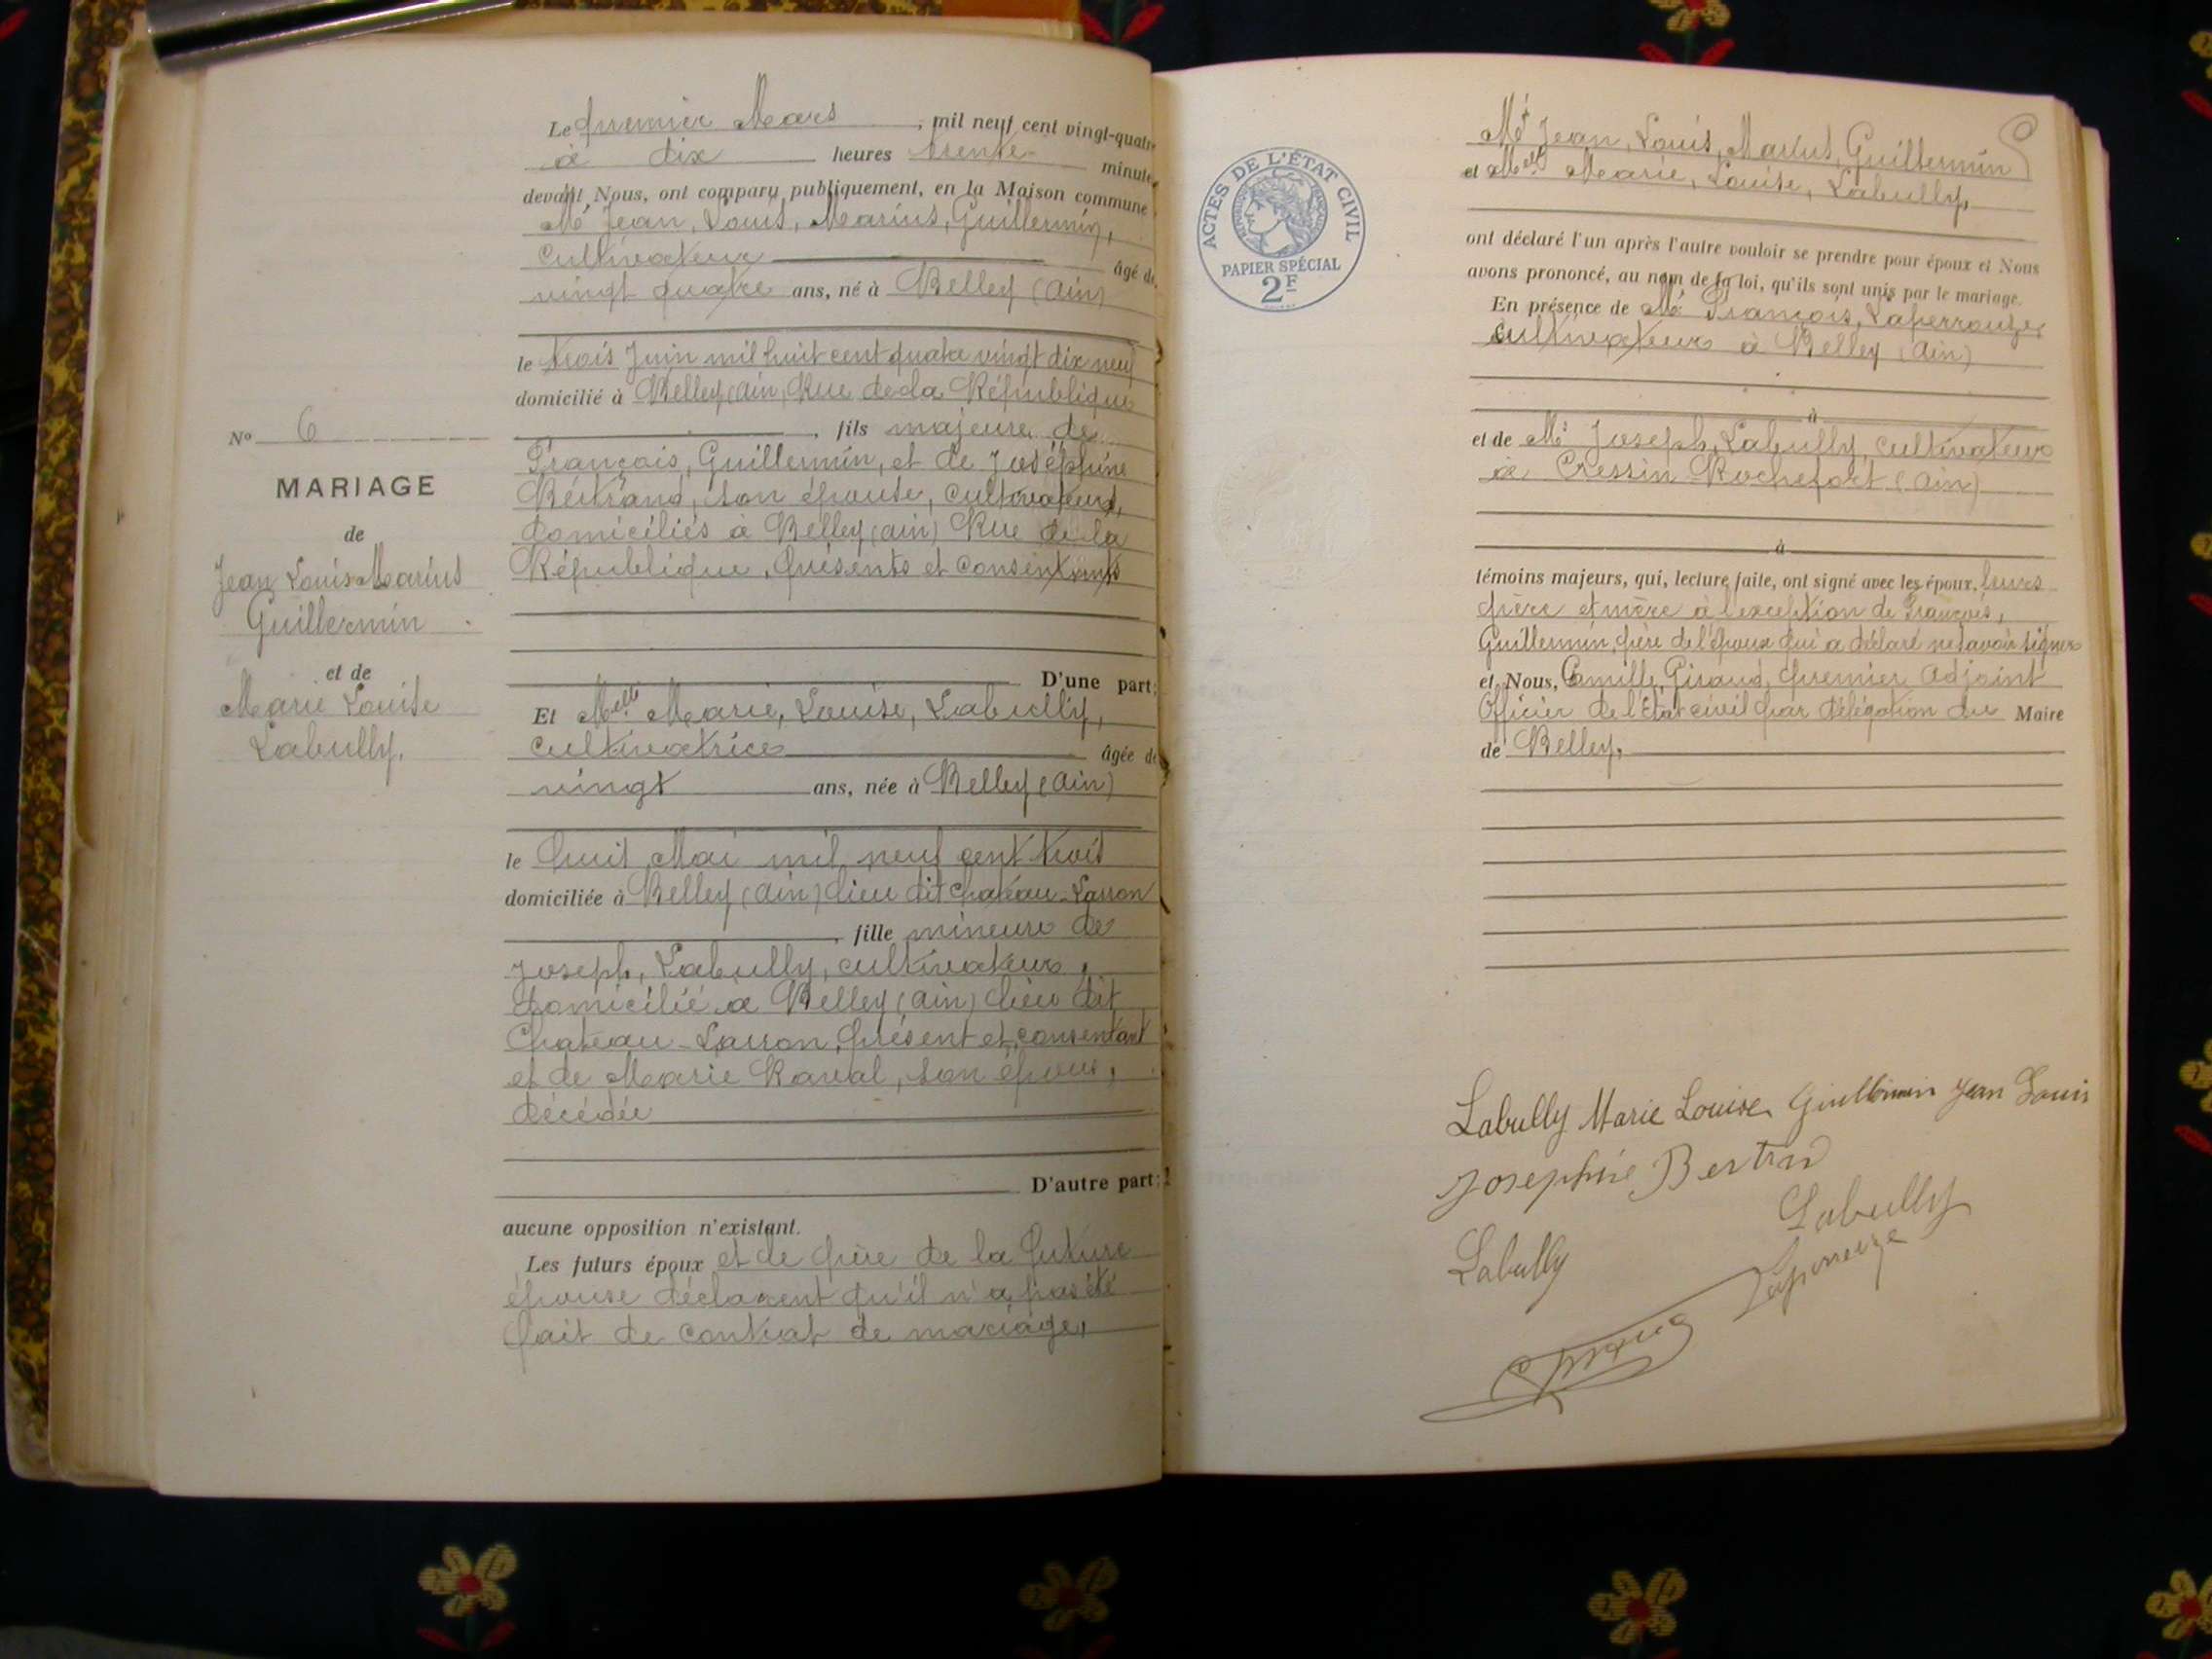 Le premier Mars, mil neuf cent vingt-quatre
à dix heures trente minutes
devant Nous, ont comparu publiquement, en la Maison commune
Mr Jean, Louis, Marius, Guillermin,
cultivateur âgé de
vingt quatre ans, né à Belley (Ain)
le trois Juin mil huit cent quatre vingt dix neuf
domicilié à Belley (Ain) Rue de la République
, fils majeur de
François, Guillermin, et de Joséphine
Bertrand, son épouse, cultivateurs,
domiciliés à Belley (Ain) Rue de la
République, présents et consentants
D'une part;
Et Melle Marie, Louise, Labully,
cultivatrice âgée de
vingt ans, née à Belley (Ain)
le huit Mai mil neuf cent trois
domiciliée à Belley (Ain) lieu dit Chateau-Larron
, fille mineure de
Joseph, Labully, cultivateur,
domicilié à Belley (Ain) lieu dit
Chateau-Larron, présent et consentant
et de Marie Raval, son épouse,
décédée
D'autre part;
aucune opposition n'existant.
Les futurs époux et le père de la future
épouse déclarent qu'il n'a pas été
fait de contrat de mariage,
No 6
MARIAGE
de
Jean Louis Marius
Guillermin
et de
Marie Louise
Labully.
ACTES DE L'ÉTAT CIVIL
RÉPUBLIQUE FRANÇAISE
PAPIER SPÉCIAL
2F
Mr Jean, Louis, Marius, Guillermin
et Melle Marie, Louise, Labully,
ont déclaré l'un après l'autre vouloir se prendre pour époux et Nous
avons prononcé, au nom de la loi, qu'ils sont unis par le mariage.
En présence de Mr François, Laperrouze,
cultivateur à Belley (Ain)
à
et de Mr Joseph, Labully, cultivateur
à Cressin Rochefort (Ain)
à
témoins majeurs, qui, lecture faite, ont signé avec les époux, leurs
père et mère à l'exception de François,
Guillermin, père de l'époux qui a déclaré ne savoir signer
et Nous, Camille, Giraud, premier Adjoint
Officier de l'état civil par délégation du Maire
de Belley,
Labully Marie Louise Guillermin Jean Louis
Josephine Bertrand
Labully
Labully
Laperrouze